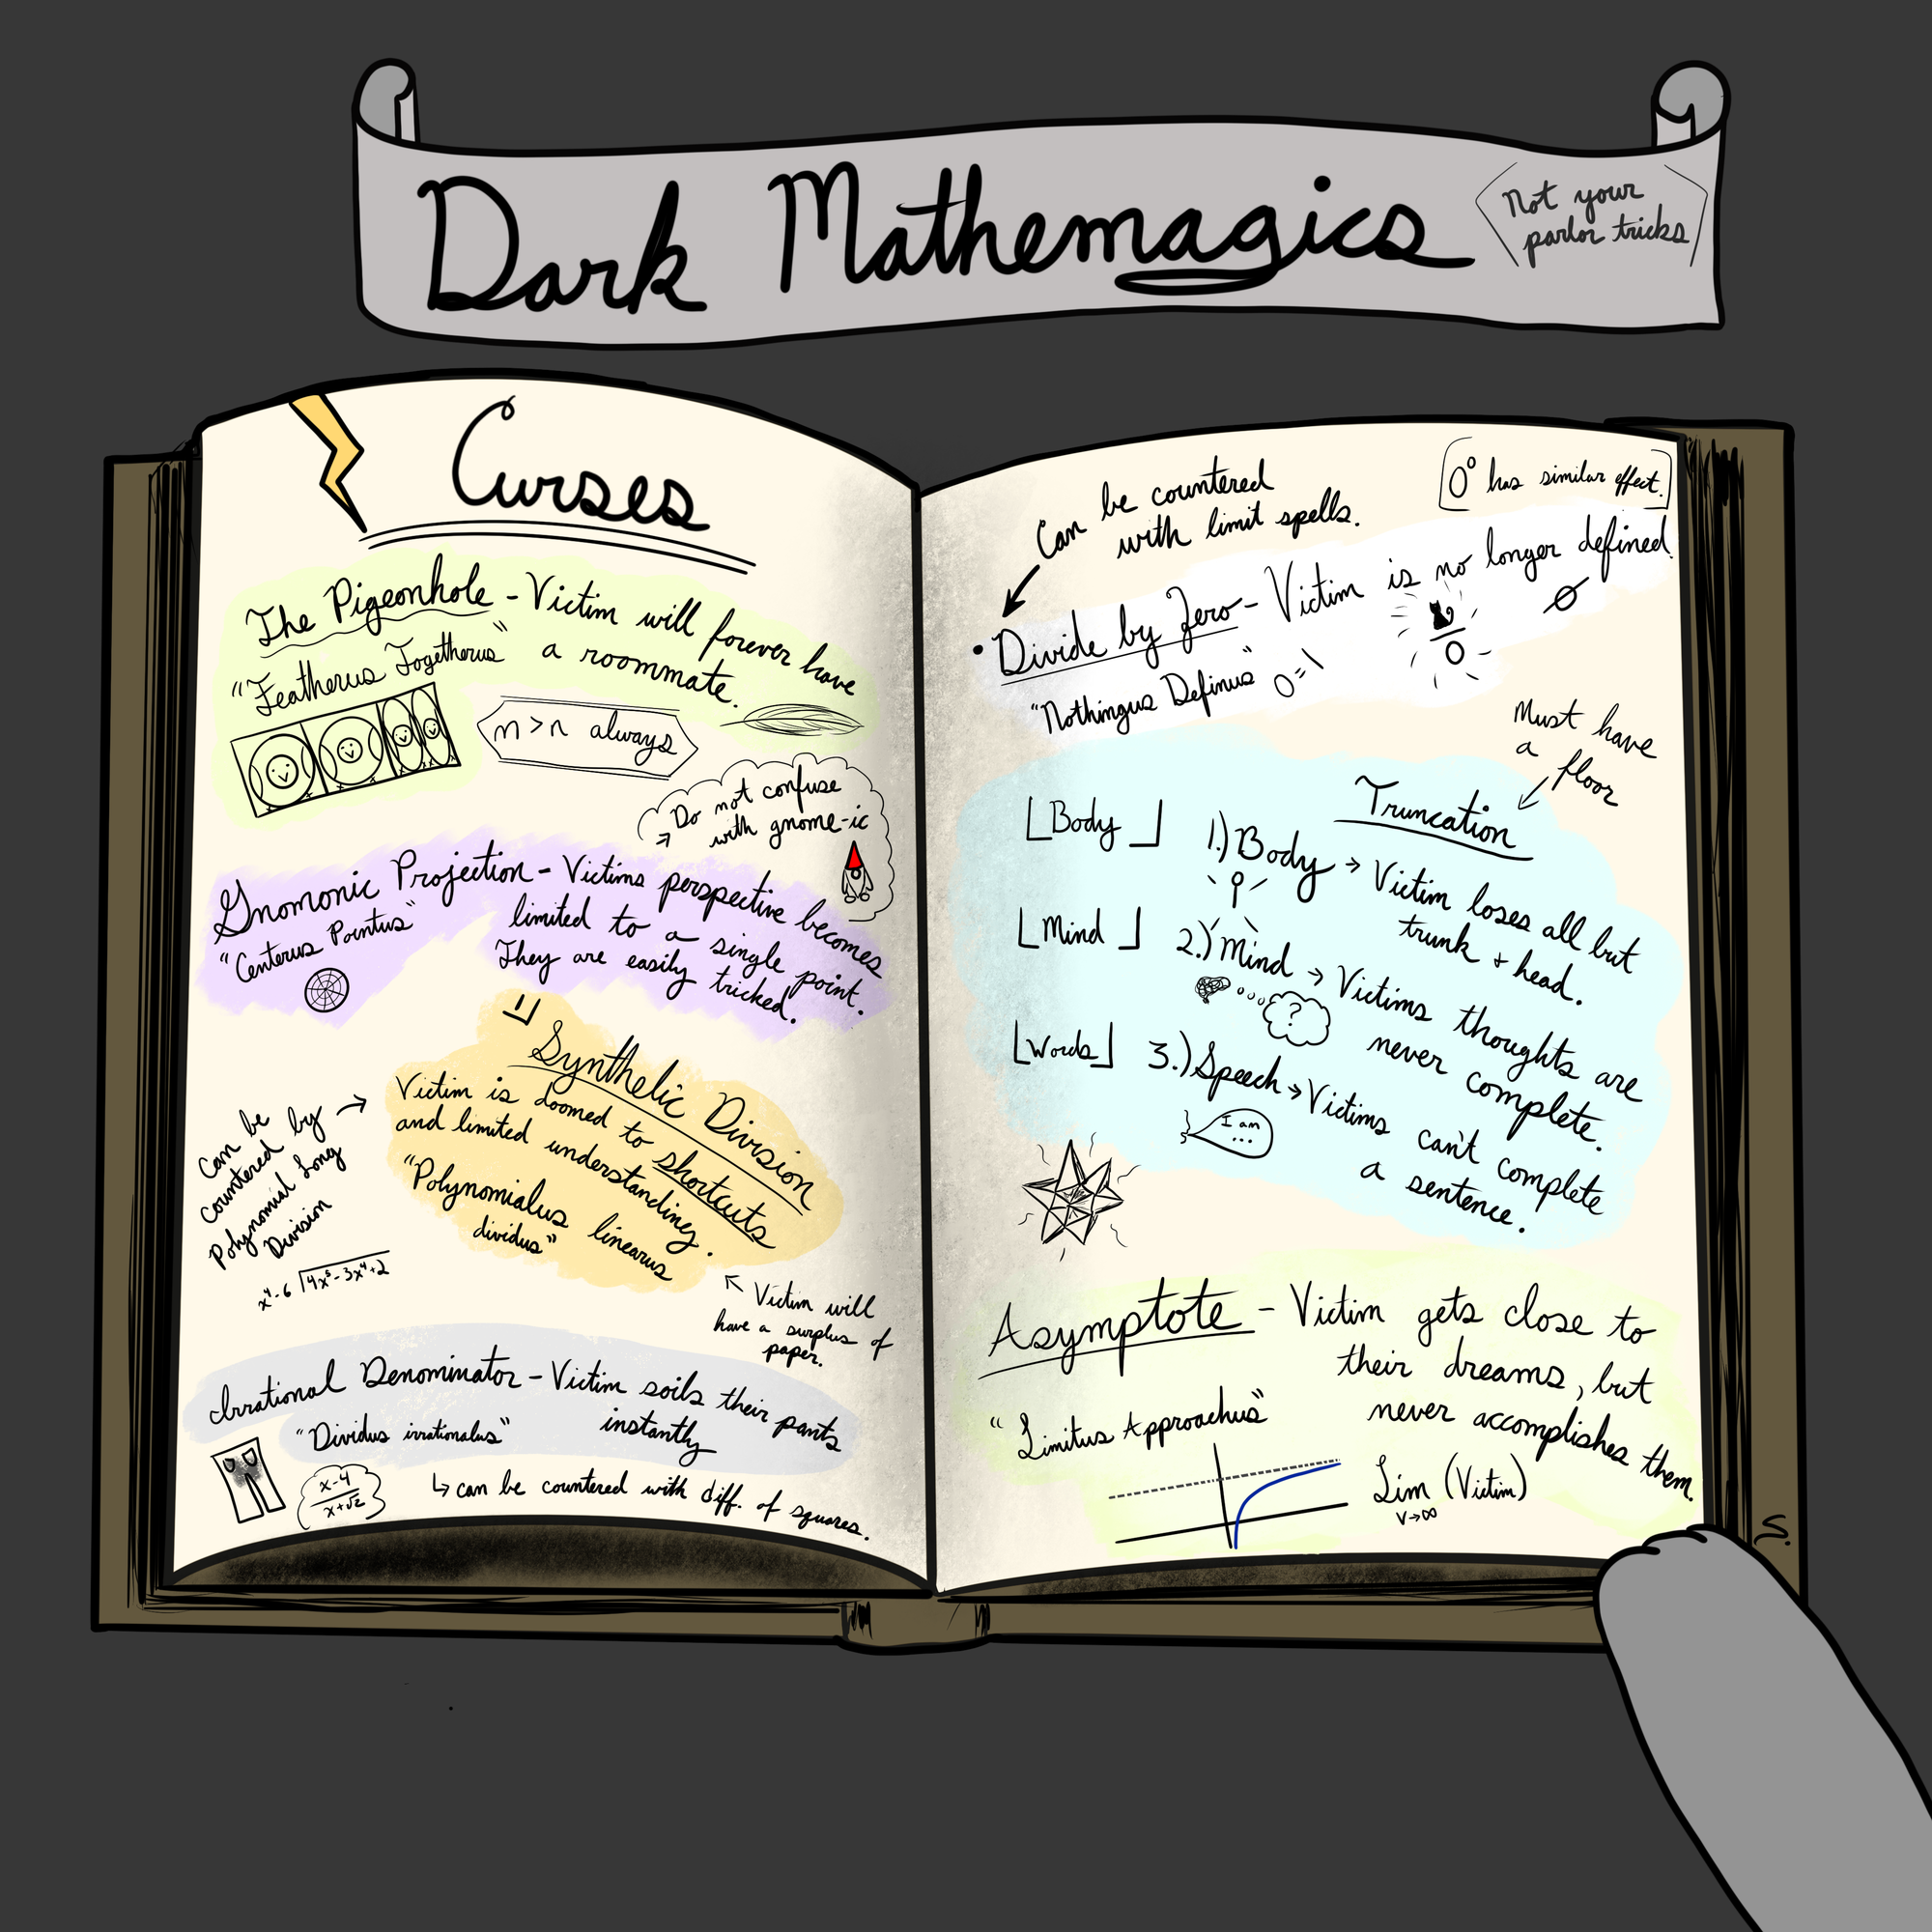 Dark Mathemagics
Not your
parlor tricks
Curses
The Pigeonhole - Victim will forever have
"Featherus Togetherus" a roommate.
m > n always
→ Do not confuse
with gnome-ic
Gnomonic Projection - Victims perspective becomes
"Centerus Pointus" limited to a single point.
They are easily tricked.
Synthetic Division
Victim is doomed to shortcuts
and limited understanding.
"Polynomialus linearus
dividus"
Can be →
countered by
Polynomial Long
Division
x⁴-6 4x⁵-3x⁴+2
↖ Victim will
have a surplus of
paper.
Irrational Denominator - Victim soils their pants
"Dividus irrationalus" instantly
x-4
x+√2
↳ can be countered with diff. of squares.
Can be countered
with limit spells.
0⁰ has similar effect.
• Divide by Zero - Victim is no longer defined.
"Nothingus Definus" 0=1
0
Ø
Must have
a floor
Truncation
⌊Body⌋ 1.) Body → Victim loses all but
trunk + head.
⌊Mind⌋ 2.) Mind → Victims thoughts are
never complete.
?
⌊Words⌋ 3.) Speech → Victims can't complete
a sentence.
I am
...
Asymptote - Victim gets close to
their dreams, but
never accomplishes them.
"Limitus Approachus"
Lim (Victim)
V→∞
S.